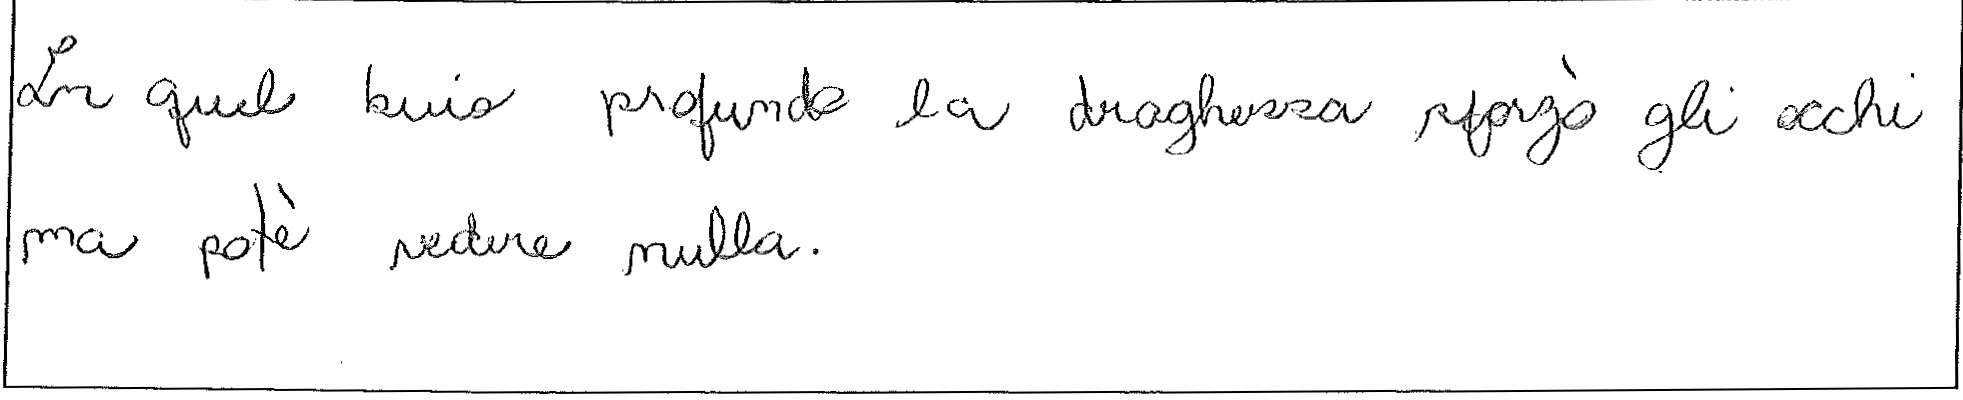 In quel buio profondo la draghessa sforzò gli occhi
ma potè vedere nulla.